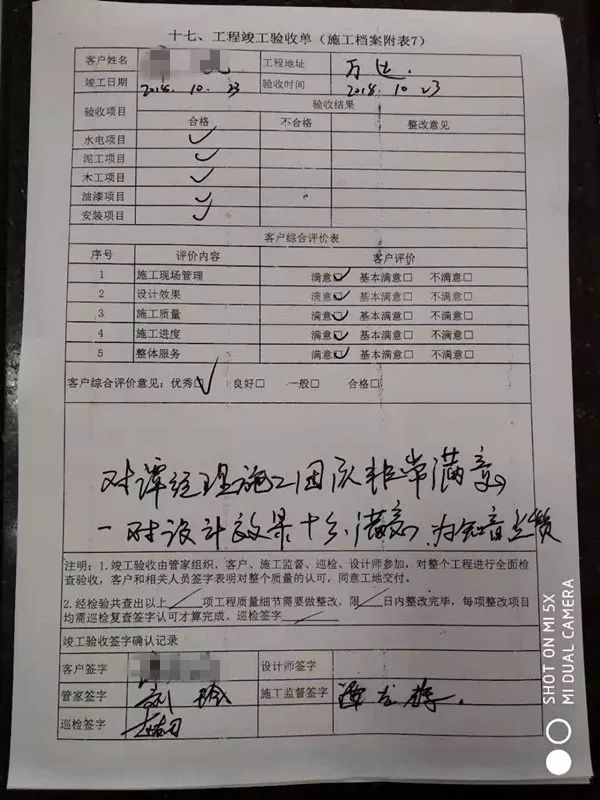 十七、工程竣工验收单（施工档案附表7）
客户姓名 工程地址 万达
竣工日期 2018.10.23 验收时间 2018.10.23
验收项目 验收结果
合格 不合格 整改意见
水电项目 ✓
泥工项目 ✓
木工项目 ✓
油漆项目 ✓
安装项目 ✓
客户综合评价表
序号 评价内容 客户评价
1 施工现场管理 满意☑ 基本满意□ 不满意□
2 设计效果 满意☑ 基本满意□ 不满意□
3 施工质量 满意☑ 基本满意□ 不满意□
4 施工进度 满意☑ 基本满意□ 不满意□
5 整体服务 满意☑ 基本满意□ 不满意□
客户综合评价意见：优秀☑ 良好□ 一般□ 合格□
对谭经理施工团队非常满意
对设计效果十分满意，为知音点赞
注明：1.竣工验收由管家组织，客户、施工监督、巡检、设计师参加，对整个工程进行全面检
查验收，客户和相关人员签字表明对整个质量的认可，同意工地交付。
2.经检验共查出以上 / 项工程质量细节需要做整改，限 / 日内整改完毕，每项整改项目
均需巡检复查签字认可才算完成，巡检签字 /
竣工验收签字确认记录
客户签字 设计师签字
管家签字 施工监督签字
巡检签字
SHOT ON MI 5X
MI DUAL CAMERA